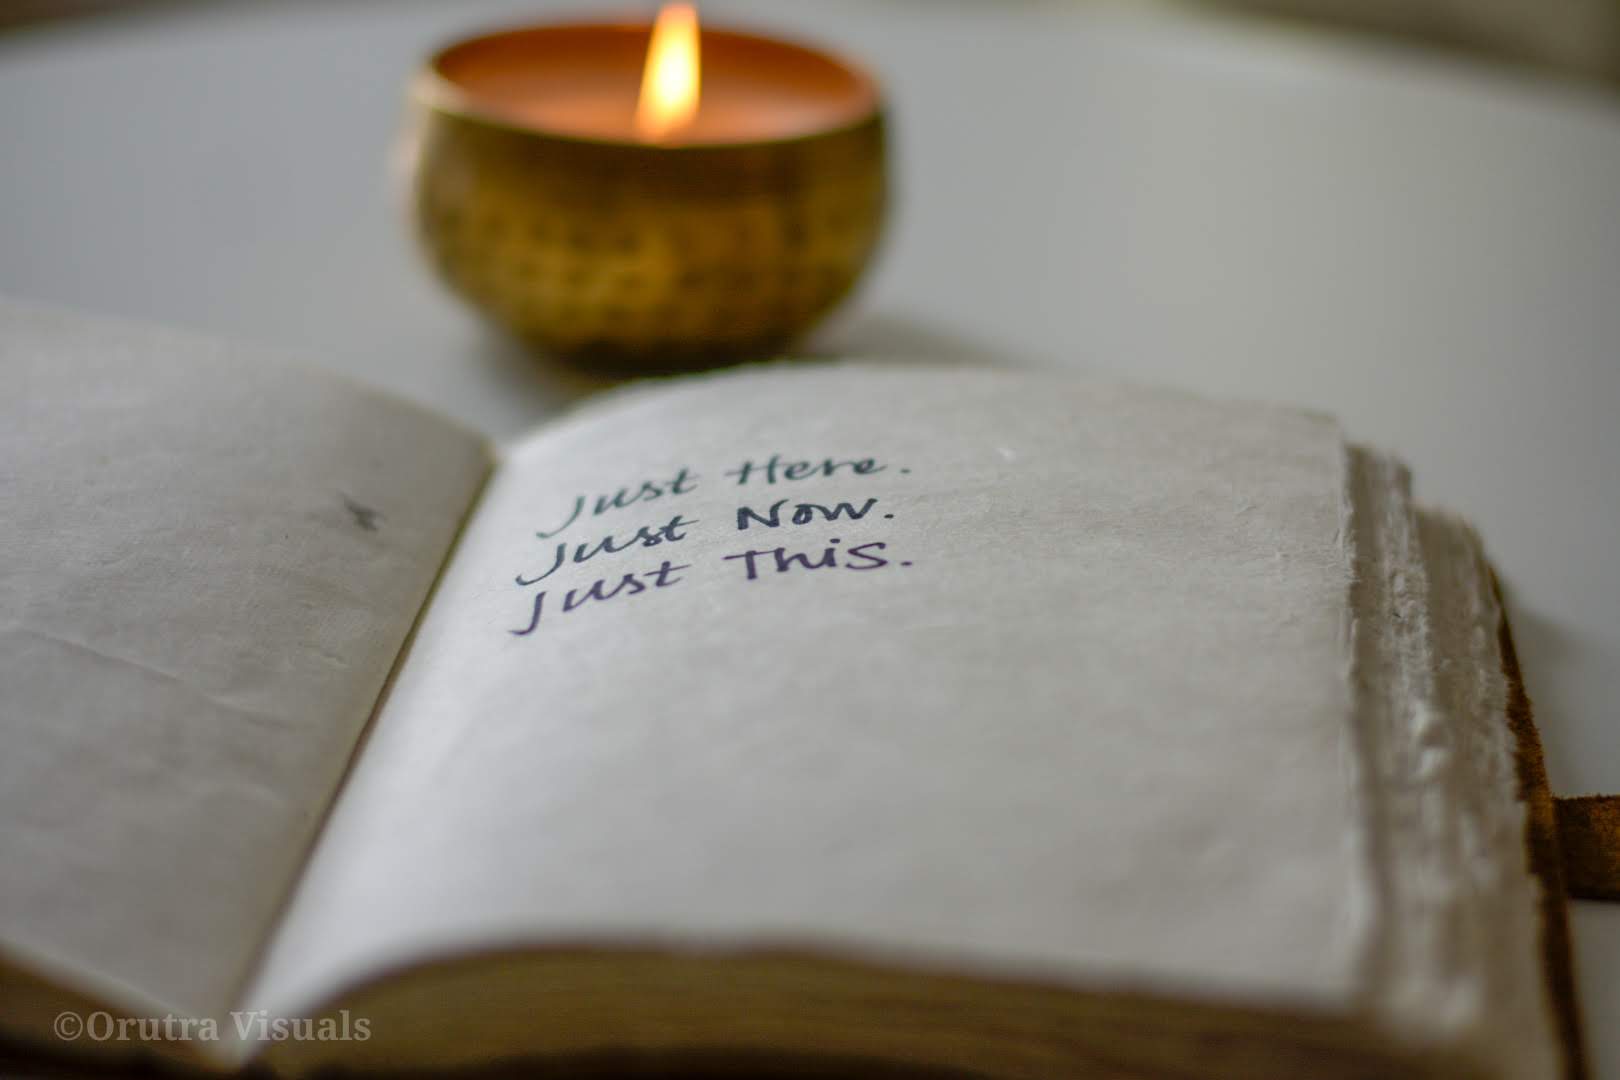 Just Here.
Just Now.
Just This.
©Orutra Visuals